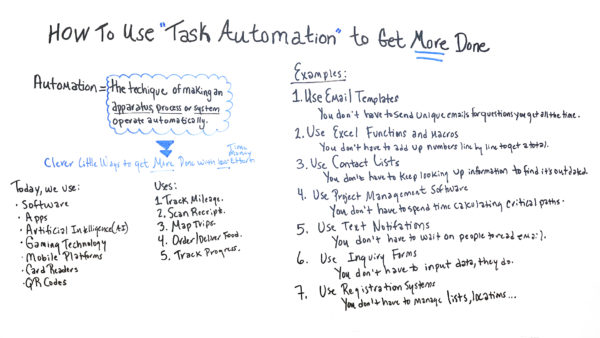 How To Use "Task Automation" to Get More Done
Automation = the techique of making an
apparatus, process or system
operate automatically.
Time
Money
Clever Little Ways to get More Done with less Effort
Today, we use:
• Software
• Apps
• Artificial Intelligence (AI)
• Gaming Technology
• Mobile Platforms
• Card Readers
• QR Codes
Uses:
1. Track Mileage.
2. Scan Receipt.
3. Map Trips.
4. Order/Deliver Food.
5. Track Progress.
Examples:
1. Use Email Templates
You don't have to send unique emails for questions you get all the time.
2. Use Excel Functions and Macros
You don't have to add up numbers line by line to get a total.
3. Use Contact Lists
You don't have to keep looking up information to find it's outdated.
4. Use Project Management Software
You don't have to spend time calculating critical paths.
5. Use Text Notifations
You don't have to wait on people to read email.
6. Use Inquiry Forms
You don't have to input data, they do.
7. Use Registration Systems
You don't have to manage lists, locations...